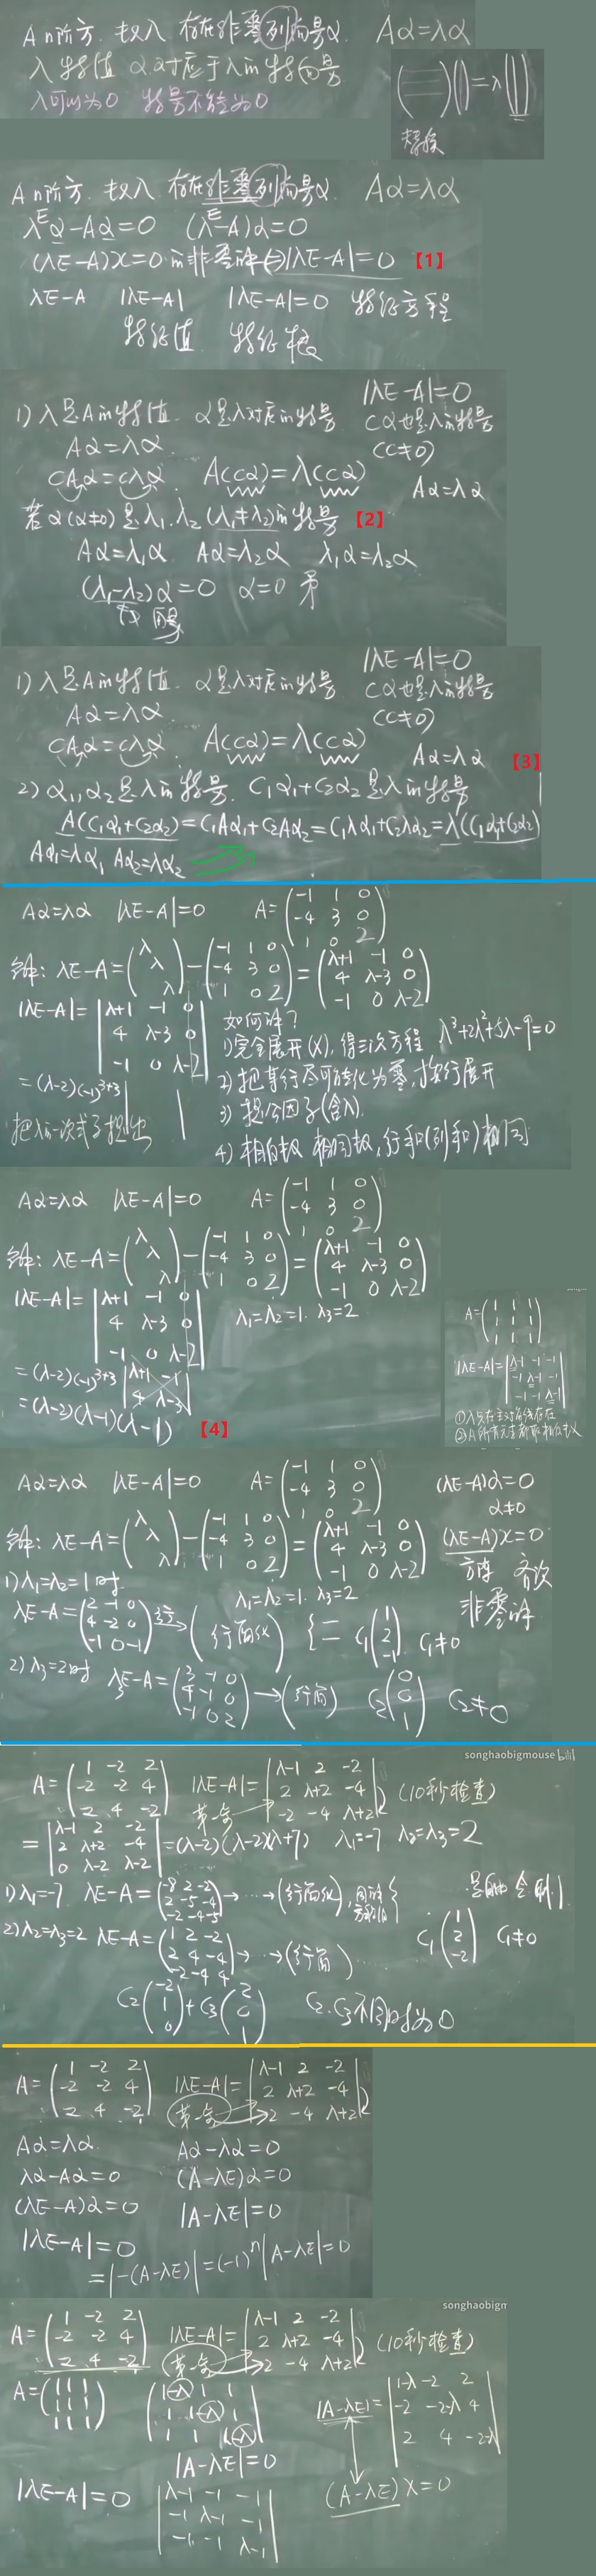 A n阶方. 数λ 存在非零列向量α. Aα=λα
λ 特值 α对应于λ的特向量
λ可以为0 特量不能为0
( )( )=λ( )
A n阶方. 数λ 存在非零列向量α. Aα=λα
λEα-Aα=0 (λE-A)α=0
(λE-A)x=0的非零解⇔|λE-A|=0 【1】
λE-A |λE-A| |λE-A|=0 特征方程
特征值 特征根
|λE-A|=0
1) λ是A的特值. α是λ对应的特量 cα也是λ的特量
Aα=λα. (c≠0)
cAα=cλα. A(cα)=λ(cα) Aα=λα
若α(α≠0)是λ₁.λ₂(λ₁≠λ₂)的特量 【2】
Aα=λ₁α Aα=λ₂α λ₁α=λ₂α
(λ₁-λ₂)α=0 α=0 矛
|λE-A|=0
1) λ是A的特值. α是λ对应的特量 cα也是λ的特量
Aα=λα (c≠0)
cAα=cλα. A(cα)=λ(cα) Aα=λα 【3】
2) α₁,α₂是λ的特量. c₁α₁+c₂α₂是λ的特量
A(c₁α₁+c₂α₂)=c₁Aα₁+c₂Aα₂=c₁λα₁+c₂λα₂=λ(c₁α₁+c₂α₂)
Aα₁=λα₁ Aα₂=λα₂
Aα=λα |λE-A|=0 A=(-1 1 0
-4 3 0
1 0 2)
解: λE-A=(λ λ λ)-(-1 1 0
-4 3 0
1 0 2)=(λ+1 -1 0
4 λ-3 0
-1 0 λ-2)
|λE-A|=|λ+1 -1 0
4 λ-3 0
-1 0 λ-2|
=(λ-2)(-1)³⁺³| |
把λ的一次式子提出
如何讲?
1) 完全展开(X), 得三次方程 λ³+2λ²+5λ-9=0
2) 把某行尽可转化为零, 按行展开
3) 提公因子(含λ).
4) 相反数 相同数, 行和(列和)相同
Aα=λα |λE-A|=0 A=(-1 1 0
-4 3 0
1 0 2)
解: λE-A=(λ λ λ)-(-1 1 0
-4 3 0
1 0 2)=(λ+1 -1 0
4 λ-3 0
-1 0 λ-2)
|λE-A|=|λ+1 -1 0
4 λ-3 0
-1 0 λ-2| λ₁=λ₂=1. λ₃=2
=(λ-2)(-1)³⁺³|λ+1 -1
4 λ-3|
=(λ-2)(λ-1)(λ-1) 【4】
A=(1 1 1
1 1 1
1 1 1)
|λE-A|=|λ-1 -1 -1
-1 λ-1 -1
-1 -1 λ-1|
①λ只在主对角线存在
②A所有元素都取相反数
Aα=λα |λE-A|=0 A=(-1 1 0
-4 3 0
1 0 2) (λE-A)α=0
α≠0
解: λE-A=(λ λ λ)-(-1 1 0
-4 3 0
1 0 2)=(λ+1 -1 0
4 λ-3 0
-1 0 λ-2) (λE-A)x=0
方阵 齐次
非零解
1) λ₁=λ₂=1时. λ₁=λ₂=1. λ₃=2
λE-A=(2 -1 0
4 -2 0
-1 0 -1)→(行简化) {= c₁(1
2
-1) c₁≠0
2) λ₃=2时 λ₃E-A=(3 -1 0
4 -1 0
-1 0 2)→(行简) c₂(0
0
1) c₂≠0
songhaobigmouse bilil
A=(1 -2 2
-2 -2 4
2 4 -2) |λE-A|=|λ-1 2 -2
2 λ+2 -4
-2 -4 λ+2| (10秒检查)
=|λ-1 2 -2
2 λ+2 -4
0 λ-2 λ-2|=(λ-2)(λ-2)(λ+7) λ₁=-7 λ₂=λ₃=2
1) λ₁=-7 λE-A=(-8 2 -2
2 -5 -4
-2 -4 -5)→…→(行简化), 同解方程组{
c₁(1
2
-2) c₁≠0
2) λ₂=λ₃=2 λE-A=(1 2 -2
2 4 -4
-2 -4 4)→…→(行简)…
c₂(-2
1
0)+c₃(2
0
1) c₂.c₃不同时为0
A=(1 -2 2
-2 -2 4
2 4 -2) |λE-A|=|λ-1 2 -2
2 λ+2 -4
-2 -4 λ+2|
Aα=λα. Aα-λα=0
λα-Aα=0 (A-λE)α=0
(λE-A)α=0 |A-λE|=0
|λE-A|=0
=|-(A-λE)|=(-1)ⁿ|A-λE|=0
songhaobigm
A=(1 -2 2
-2 -2 4
2 4 -2) |λE-A|=|λ-1 2 -2
2 λ+2 -4
-2 -4 λ+2| (10秒检查)
A=(1 1 1
1 1 1
1 1 1) (1-λ 1 1
1 1-λ 1
1 1 1-λ) |A-λE|=|1-λ -2 2
-2 -2-λ 4
2 4 -2-λ|
|A-λE|=0
|λE-A|=0 |λ-1 -1 -1
-1 λ-1 -1
-1 -1 λ-1| (A-λE)x=0